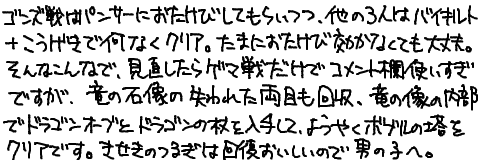 ゴンズ戦はパンサーにおたけびしてもらいつつ、他の3人はバイキルト
+こうげきで何なくクリア。たまにおたけび効かなくても大丈夫。
そんなこんなで、見直したらゲマ戦だけでコメント欄使いすぎ
ですが、竜の石像の失われた両目も回収、竜の像の内部
でドラゴンオーブとドラゴンの杖を入手して、ようやくボブルの塔を
クリアです。きせきのつるぎは回復おいしいので男の子へ。